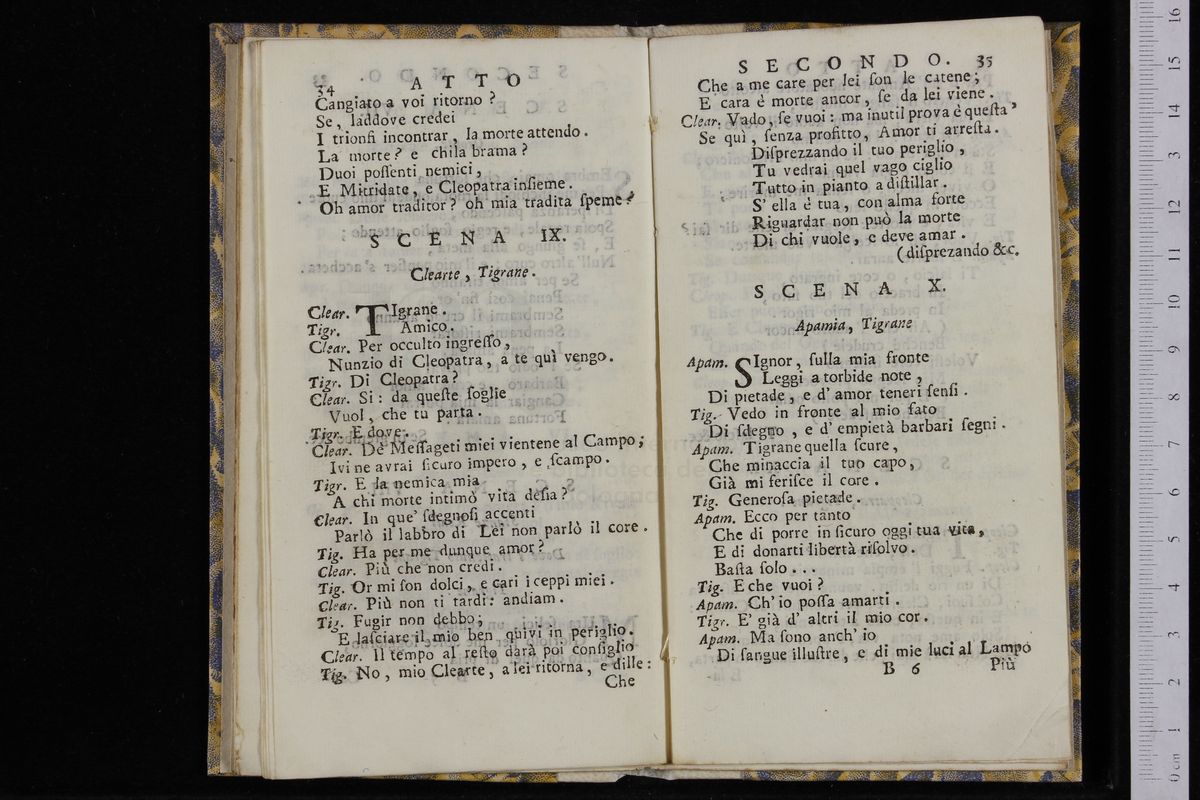 34 ATTO
Cangiato a voi ritorno ?
Se, laddove credei
I trionfi incontrar, la morte attendo.
La morte? e chi la brama?
Duoi poſſenti nemici,
E Mitridate, e Cleopatra inſieme.
Oh amor traditor? oh mia tradita ſpeme?
SCENA IX.
Clearte, Tigrane.
Clear. TIgrane.
Tigr. Amico.
Clear. Per occulto ingreſſo,
Nunzio di Cleopatra, a te quì vengo.
Tigr. Di Cleopatra?
Clear. Si: da queſte ſoglie
Vuol, che tu parta.
Tigr. E dove.
Clear. De' Meſſageti miei vientene al Campo;
Ivi ne avrai ſicuro impero, e ſcampo.
Tigr. E la nemica mia
A chi morte intimò vita deſia?
Clear. In que' ſdegnoſi accenti
Parlò il labbro di Lei non parlò il core.
Tig. Ha per me dunque amor?
Clear. Più che non credi.
Tig. Or mi ſon dolci, e cari i ceppi miei.
Clear. Più non ti tardi: andiam.
Tig. Fugir non debbo;
E laſciare il mio ben quivi in periglio.
Clear. Il tempo al reſto darà poi conſiglio
Tig. No, mio Clearte, a lei ritorna, e dille:
Che
SECONDO. 35
Che a me care per lei ſon le catene;
E cara è morte ancor, ſe da lei viene.
Clear. Vado, ſe vuoi: ma inutil prova è queſta,
Se quì, ſenza profitto, Amor ti arreſta.
Diſprezzando il tuo periglio,
Tu vedrai quel vago ciglio
Tutto in pianto a diſtillar.
S' ella è tua, con alma forte
Riguardar non può la morte
Di chi vuole, e deve amar.
(diſprezando &c.
SCENA X.
Apamia, Tigrane
Apam. SIgnor, ſulla mia fronte
Leggi a torbide note,
Di pietade, e d' amor teneri ſenſi.
Tig. Vedo in fronte al mio fato
Di ſdegno, e d' empietà barbari ſegni.
Apam. Tigrane quella ſcure,
Che minaccia il tuo capo,
Già mi feriſce il core.
Tig. Generoſa pietade.
Apam. Ecco per tanto
Che di porre in ſicuro oggi tua vita,
E di donarti libertà riſolvo.
Baſta ſolo...
Tig. E che vuoi?
Apam. Ch' io poſſa amarti.
Tigr. E' già d' altri il mio cor.
Apam. Ma ſono anch' io
Di ſangue illuſtre, e di mie luci al Lampo
B 6 Più